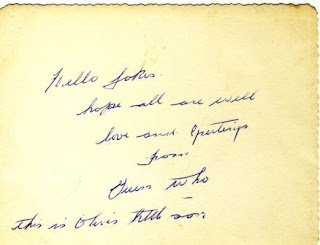 Hello folks.
hope all are well
love and Greetings
from
Guess Who
this is Olive's little son